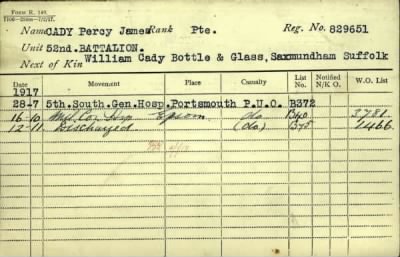 FORM R. 149.
Name CADY Percy James Rank Pte. Reg. No. 829651
Unit 52nd. BATTALION.
Next of Kin William Cady Bottle & Glass, Saxmundham Suffolk
Date Movement Place Casualty List No. Notified N/O K. W.O. List
1917
28-7 5th. South. Gen. Hosp. Portsmouth P.U.O. B372
16-10 Mil. Con. Hosp Epsom do B40 3781
12-11 Discharged (do) B75 1466